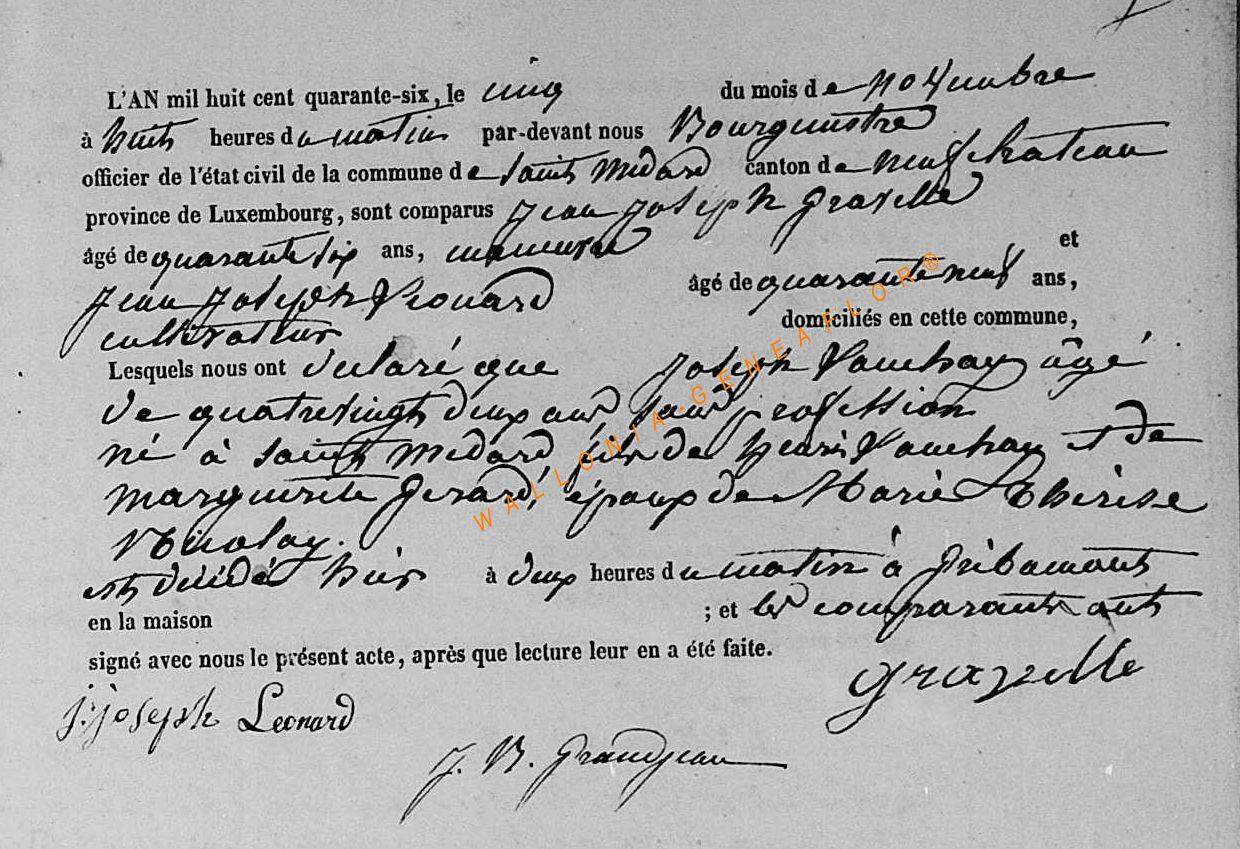 L'AN mil huit cent quarante-six, le cinq du mois de novembre
à huit heures du matin par-devant nous Bourgmestre
officier de l'état civil de la commune de saint Médard canton de neufchateau
province de Luxembourg, sont comparus jean joseph gravelle
âgé de quarante six ans, manœuvre et
jean joseph Léonard âgé de quarante neuf ans,
cultivateur domiciliés en cette commune,
Lesquels nous ont déclaré que joseph Vauchay âgé
de quatrevingt deux ans sans profession
né à saint Médard fils de henri Vauchay et de
marguerite gerard, époux de Marie Thérèse
Nicolay.
est décédé hier à deux heures du matin à gribamont
en la maison ; et les comparants ont
signé avec nous le présent acte, après que lecture leur en a été faite.
gravelle
j: joseph Leonard
J. B. Grandjean
WALLONIA-GENEALOR®